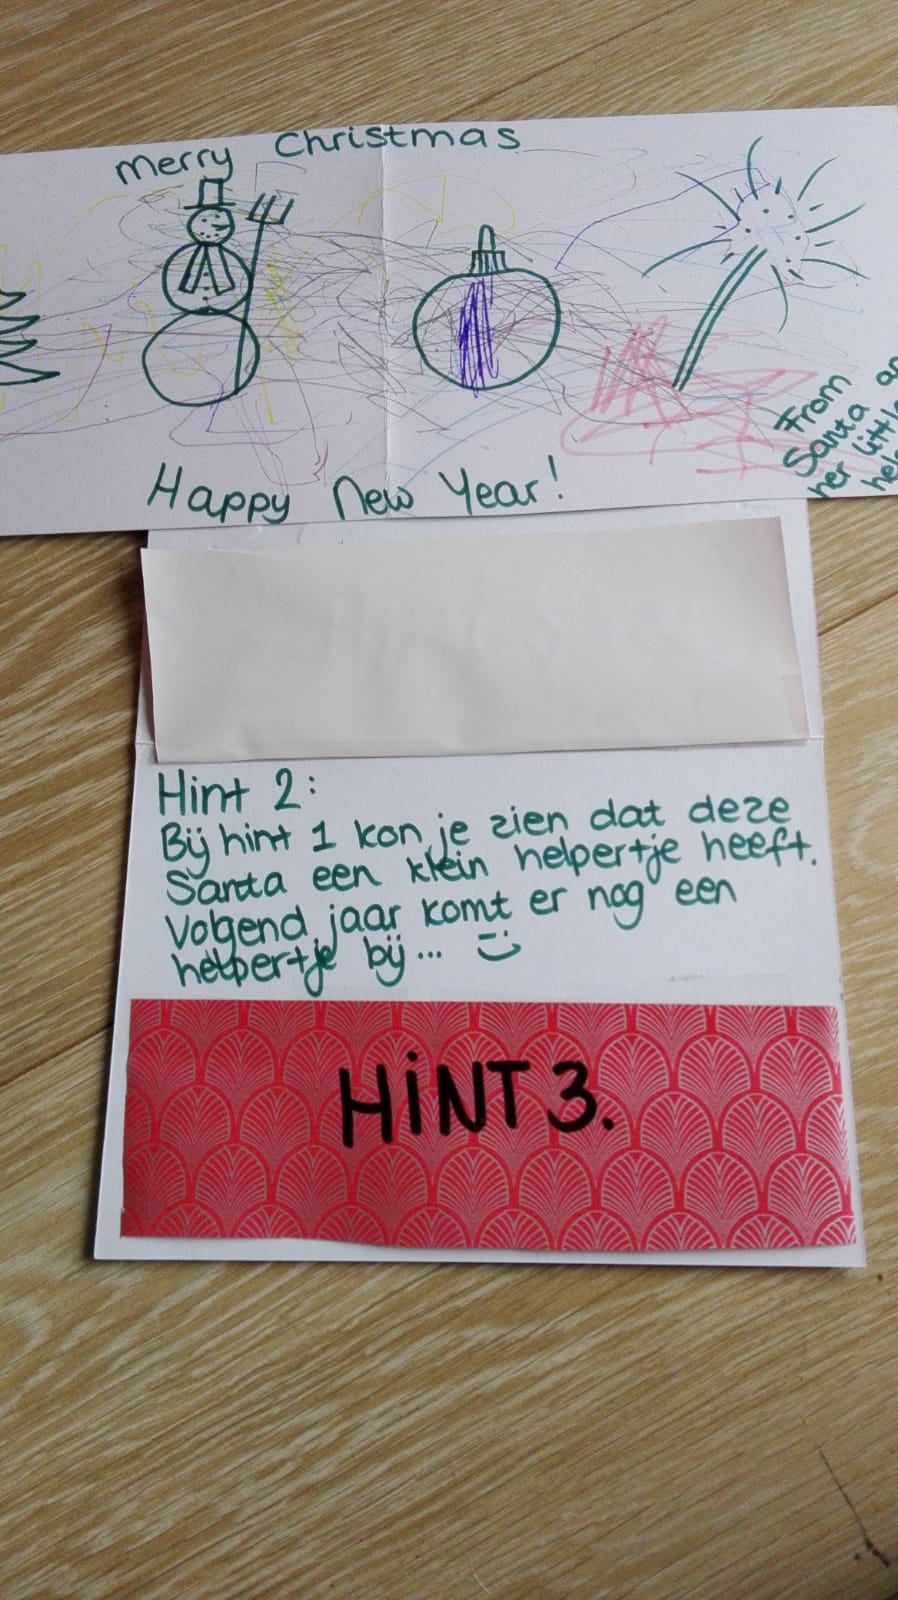 Merry Christmas
Happy New Year!
From
Santa
her
Hint 2:
Bij hint 1 kon je zien dat deze
Santa een klein helpertje heeft.
Volgend jaar komt er nog een
helpertje bij...
HINT 3.